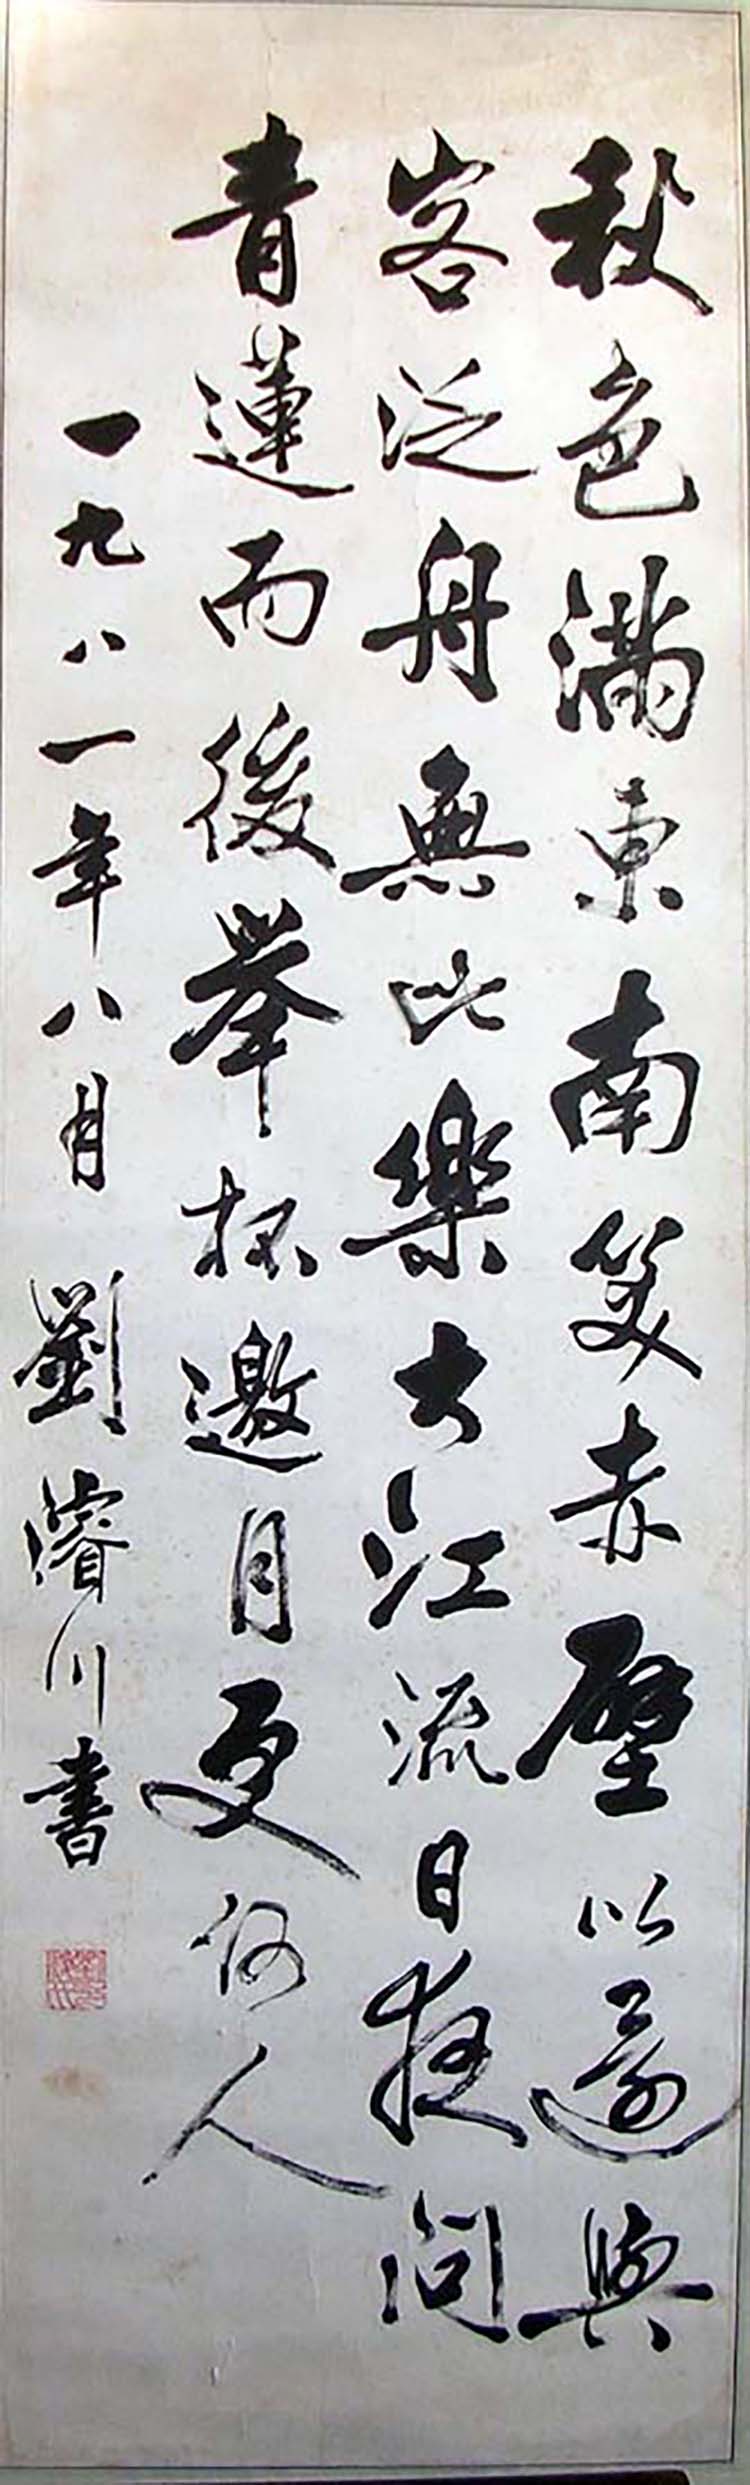 秋色滿東南笑赤壁以還與
客泛舟無此樂大江流日夜問
青蓮而後举杯邀月更何人
一九八一年八月 劉濬川書